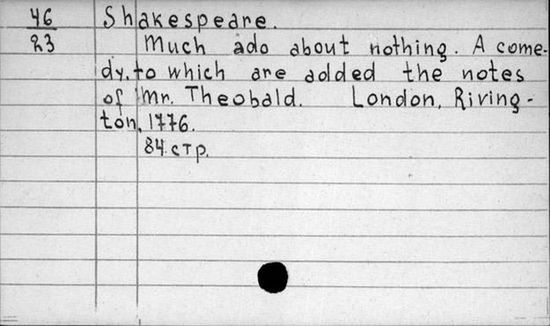 46 Shakespeare.
23 Much ado about nothing. A come-
dy, to which are added the notes
of Mr. Theobald. London, Riving-
ton, 1776.
84 стр.